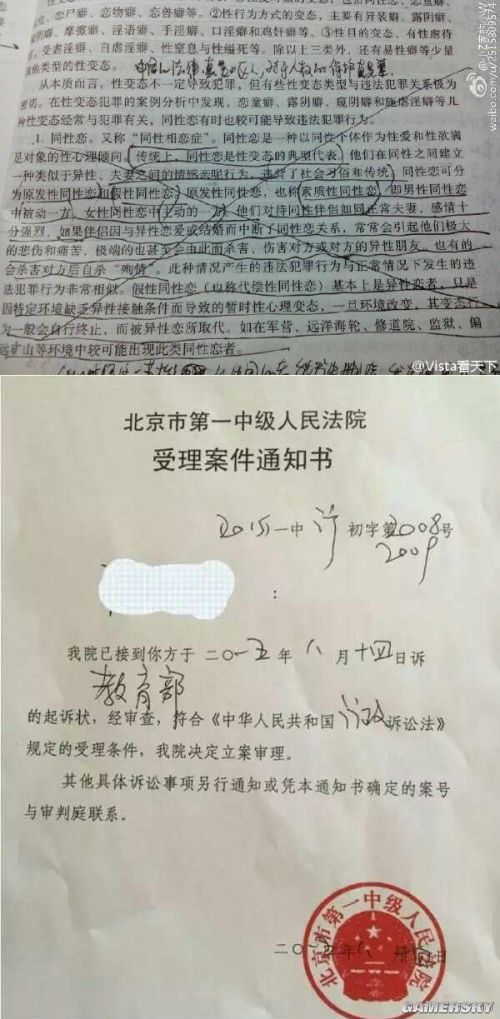 恋尸癖、恋物癖、恋兽癖等。②性行为方式的变态，主要有异装癖、露阴癖、
阴癖、摩擦癖、淫语癖、手淫癖、口淫癖和鸡奸癖等。③性目的的变态，有性虐待
受虐淫癖、自虐淫癖、性窒息与性缢死等。除以上三类外，还有是性癖等少量
其他类型的性变态。
从本质而言，性变态不一定导致犯罪，但有些性变态类型与违法犯罪关系极为
密切。在性变态犯罪的案例分析中发现，恋童癖、露阴癖、窥阴癖和施虐淫癖等几
种性变态经常与犯罪有关，同性恋有时也较可能导致违法犯罪行为。
1. 同性恋。又称“同性相恋症”。同性恋是一种以同性个体作为性爱和性欲满
足对象的性心理倾向。传统上，同性恋是性变态的典型代表。他们在同性之间建立
一种类似于异性、夫妻之间的情感亲昵行为，违了社会习俗和传统。同性恋可分
为原发性同性恋和假性同性恋。原发性同性恋，也称素质性同性恋，即男性同性恋
中被动一方，女性同性恋中主动的一方，他们对待同性伴侣如同正常夫妻，感情十
分强烈，如果伴侣因与异性恋爱或结婚而中断了同性恋关系，常常会引起他们极大
的悲伤和痛苦，极端的也甚至会由此而杀害、伤害对方或对方的异性朋友，也有的
会杀害对方后自杀“殉情”。此种情况产生的违法犯罪行为与正常情况下发生的违
法犯罪行为非常相似。假性同性恋（也称代偿性同性恋）基本上是异性恋者，只是
因特定环境缺乏异性接触条件而导致的暂时性心理变态，一旦环境改变，其变态行
为一般会自行终止，而被异性恋所取代。如在军营、远洋海轮、修道院、监狱、偏
远矿山等环境中较可能出现此类同性恋者。
@Vista看天下
北京市第一中级人民法院
受理案件通知书
2015一中行初字第2008号
2009
：
我院已接到你方于二〇一五年八月十四日诉
教育部
的起诉状，经审查，符合《中华人民共和国行政诉讼法》
规定的受理条件，我院决定立案审理。
其他具体诉讼事项另行通知或凭本通知书确定的案号
与审判庭联系。
北京市第一中级人民法院
GAMERSKY